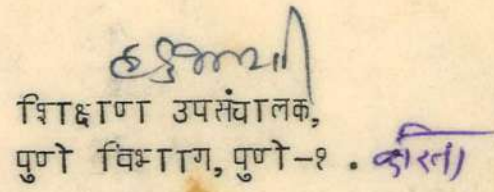 शिक्षण उपसंचालक,
पुणे विभाग, पुणे-१. करिता